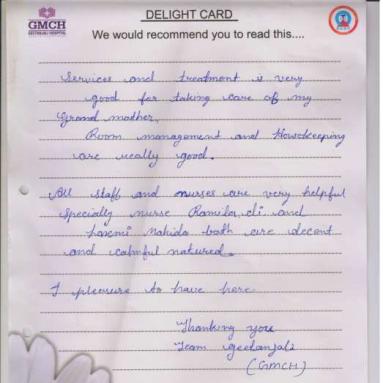 GMCH
GEETANJALI HOSPITAL
DELIGHT CARD
We would recommend you to read this....
Services and treatment is very
good for taking care of my
Grand mother.
Room management and Howsekeeping
are really good.
All staff and nurses are very helpful
specially nurse Ramila di and
laxmi Nahida both are decent
and calmful natured.
I pleasure to have here
Thanking you
Team geetanjali
(GMCH)